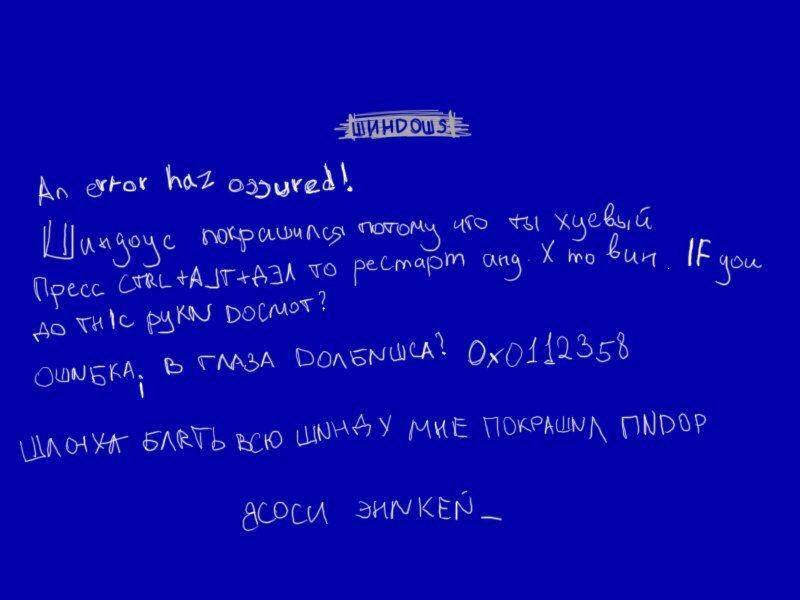 ШИНDOШS
An error haz ossured!
Шиндоус покрашился потому что ты хуевый
Пресс CTRL+ALT+ДЭЛ то рестарт анд X то вин. IF you
до тн1с руки DOCMOT?
ОШИБКА; В ГЛАЗА DОЛБИШСА? 0x0112358
ШЛЮХА БЛЯТЬ ВСЮ ШИНДУ МНЕ ПОКРАШИЛ ПИDОР
ЯСОСИ ЭНИКЕЙ_